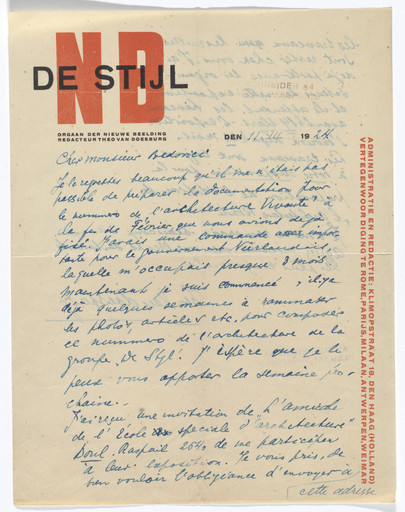 NB
DE STIJL
ORGAAN DER NIEUWE BEELDING
REDACTEUR THEO VAN DOESBURG
DEN 19 24
Cher monsieur Badovici
Je le regrettes beaucoup qu'il me n'étais pas
possible de préparer la documentation pour
le numero de l'architecture Vivante à
la fin de Février que nous avions déjà
fixée. J'avais une commande assez impor-
tante pour le gouvernement Néerlandais,
laquelle m'occupait presque 3 mois.
maintenant je suis commencé, il y a
déjà quelques semaines à rammasser
les photo's, articles etc. pour composer
ce numero de l'architecture de la
groupe "De Styl". J'espère que je le
peux vous apporter la semaine pro-
chaine.
J'ai reçu une invitation de "L'amicale
de l'Ecole speciale d'architecture"
Boul. Raspail 254 de me participer
à leur exposition. Je vous pris, de
bien vouloir l'obligeance d'envoyer à
cette adresse
ADMINISTRATIE EN REDACTIE: KLIMOPSTRAAT 18, DEN HAAG (HOLLAND)
VERTEGENWOORDIGING TE ROME, PARIJS, MILAAN, ANTWERPEN, WEIMAR